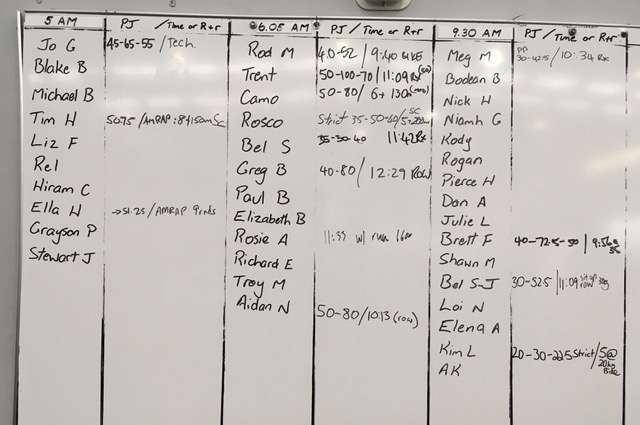 5 AM PJ / Time or R+r 6.05 AM PJ / Time or R+r 9.30 AM PJ / Time or R+r
Jo G 45-65-55 / Tech
Blake B
Michael B
Tim H 50-75 / AMRAP: 8+150m Sc
Liz F
Rel
Hiram C
Ella H → 51.25 / AMRAP 9 rnds
Grayson P
Stewart J
Rod M 40-52 / 9:40 BIKE
Trent 50-100-70 / 11:09 Rx
Camo 50-80 / 6+130m (row)
Rosco Strict 35-50-40 / 5+200m SC
Bel S 35-30-40 11:42 Rx
Greg B 40-80 / 12:29 Row
Paul B
Elizabeth B
Rosie A 11:33 w/ run
Richard E
Troy M
Aidan N 50-80 / 10:13 (row)
Meg M PP 30-42.5 / 10:34 Rx
Bodean B
Nick H
Niamh G
Kody
Rogan
Pierce H
Dan A
Julie L
Brett F 40-72.5-50 / 9:56
Shawn M
Bel S-J 30-52.5 / 11:09 row
Loi N
Elena A
Kim L 20-30-22.5 Strict / 5@ 20kg Bike
AK